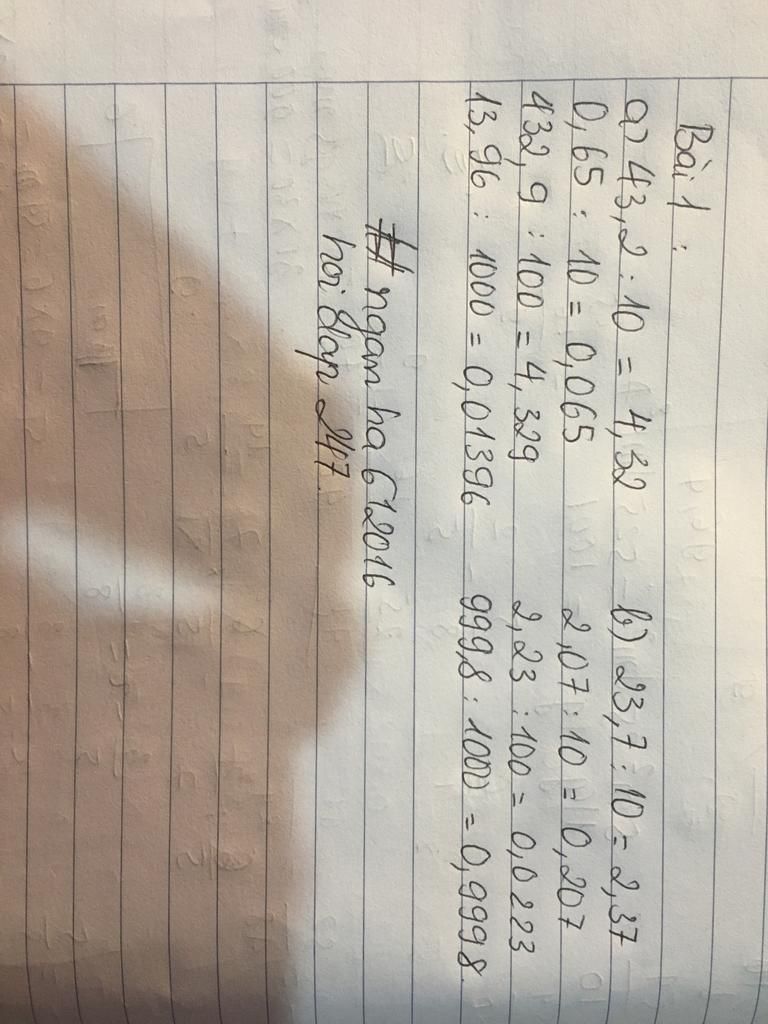 Bài 1 :
a) 43,2 : 10 = 4,32 b) 23,7 : 10 = 2,37
0,65 : 10 = 0,065 2,07 : 10 = 0,207
432,9 : 100 = 4,329 2,23 : 100 = 0,0223
13,96 : 1000 = 0,01396 999,8 : 1000 = 0,9998
# ngan ha 612016
hoi dap 247.